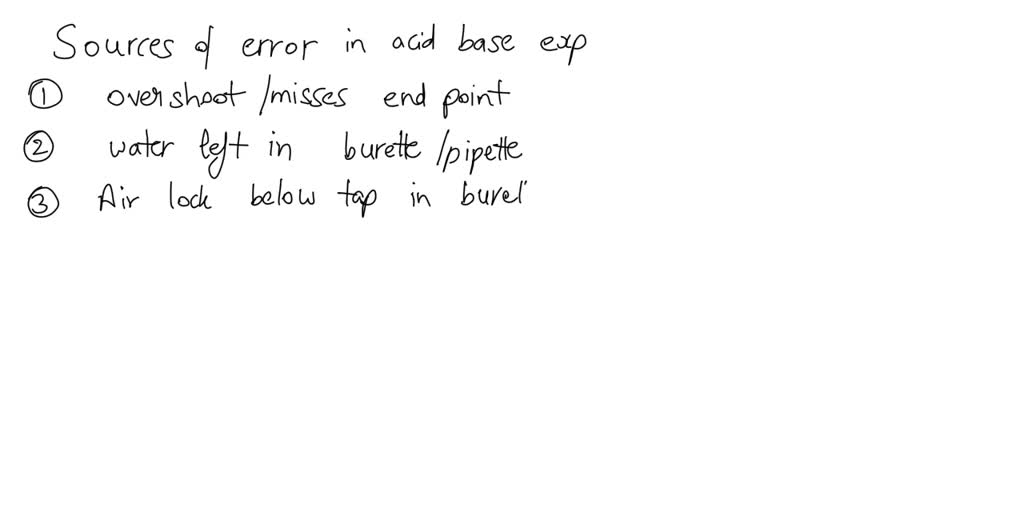 Sources of error in acid base exp
① overshoot/misses end point
② water left in burette/pipette
③ Air lock below tap in buret